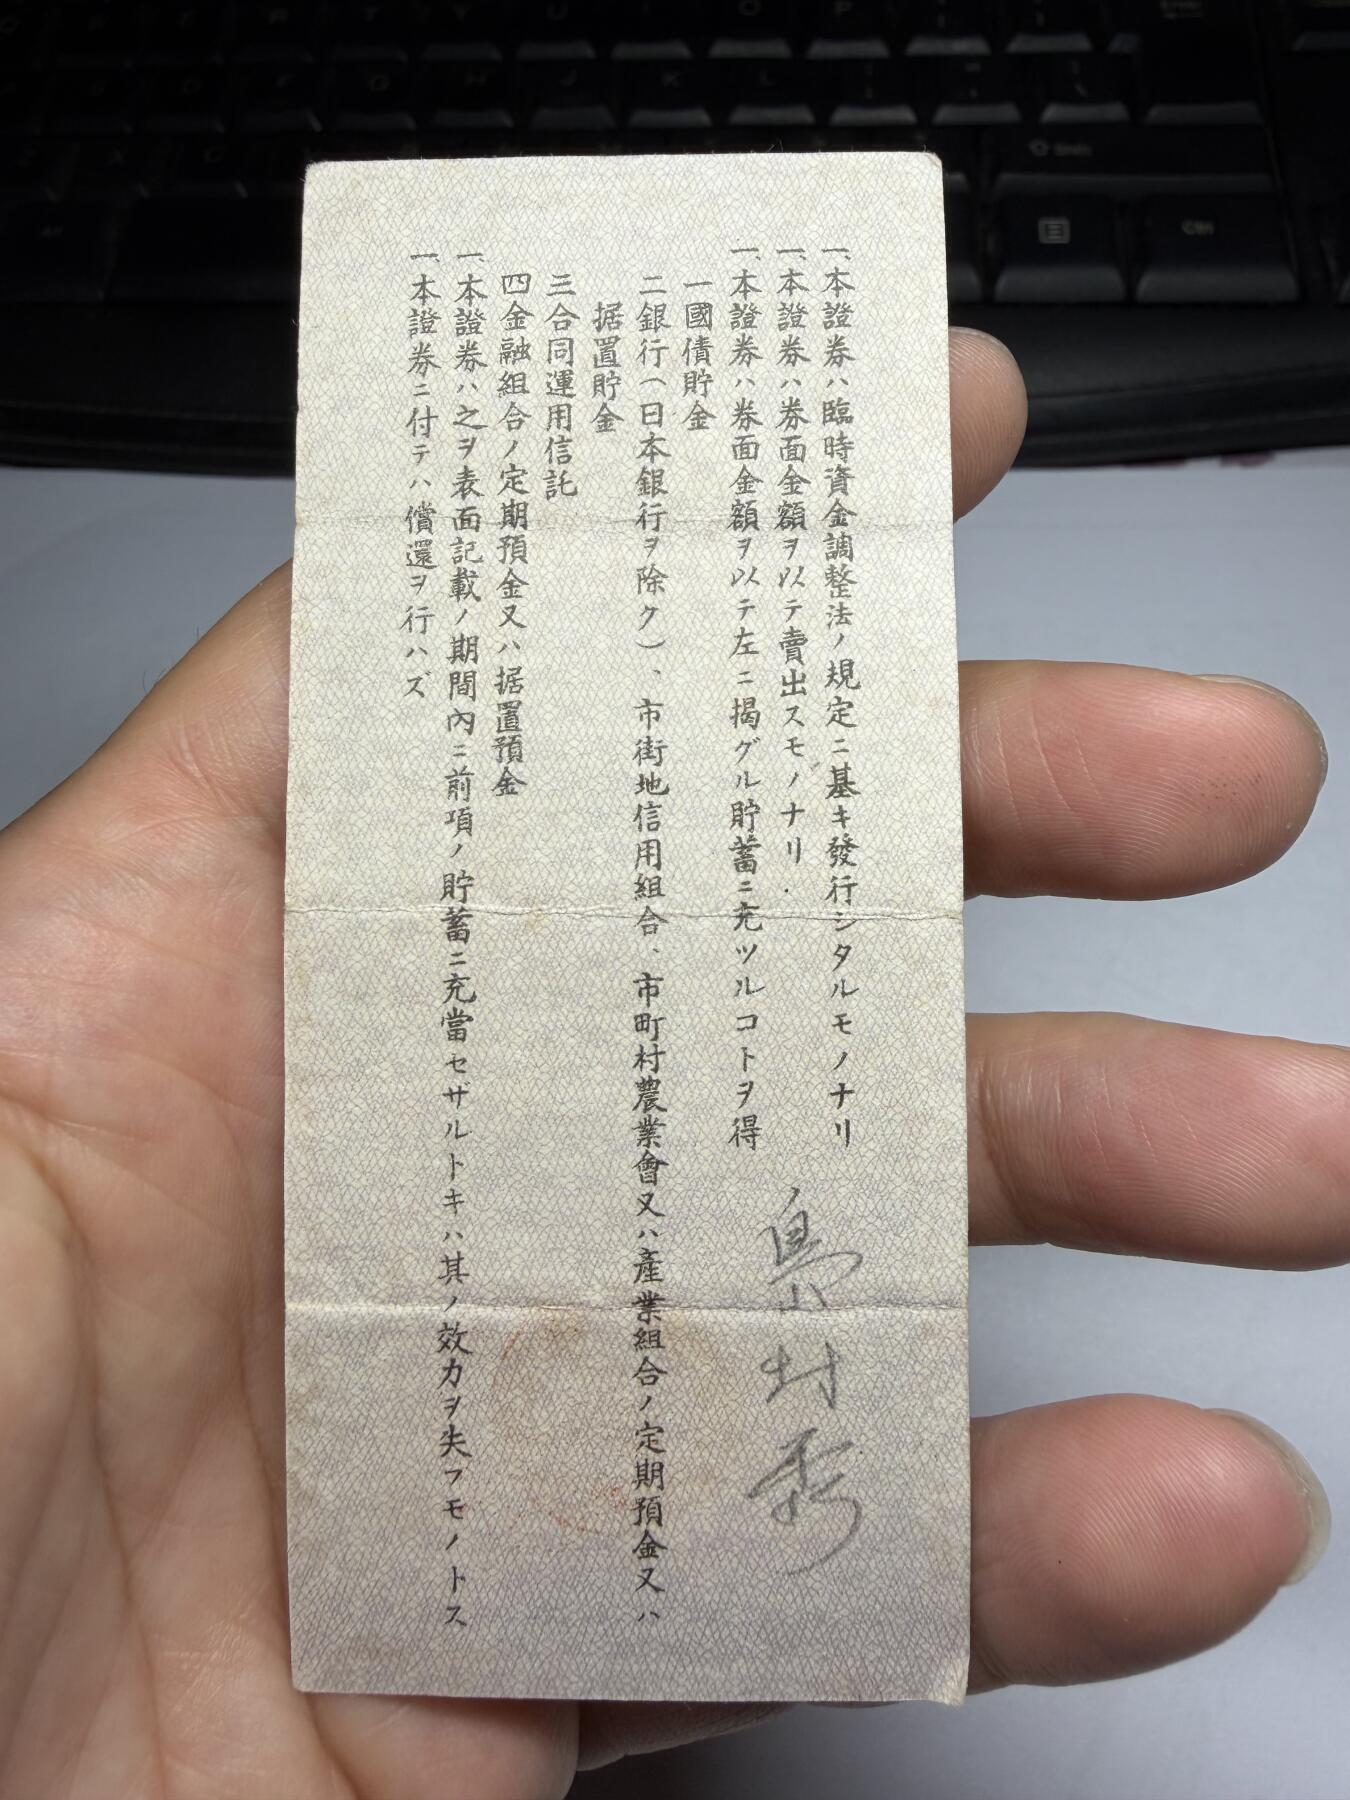 一、本證券ハ臨時資金調整法ノ規定ニ基キ發行シタルモノナリ
一、本證券ハ券面金額ヲ以テ賣出スモノナリ
一、本證券ハ券面金額ヲ以テ左ニ揭グル貯蓄ニ充ツルコトヲ得
一國債貯金
二銀行(日本銀行ヲ除ク)、市街地信用組合、市町村農業會又ハ產業組合ノ定期預金又ハ
据置貯金
三合同運用信託
四金融組合ノ定期預金又ハ据置預金
一、本證券ハ之ヲ表面記載ノ期間內ニ前項ノ貯蓄ニ充當セザルトキハ其ノ效力ヲ失フモノトス
一、本證券ニ付テハ償還ヲ行ハズ
島村秀